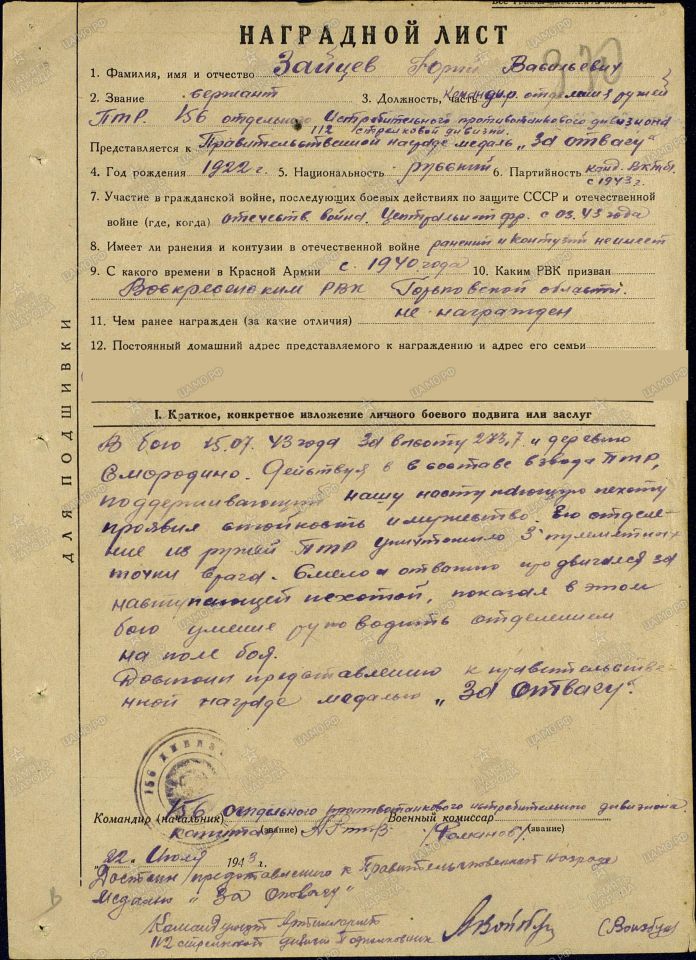 НАГРАДНОЙ ЛИСТ
1. Фамилия, имя и отчество Зайцев Юрий Васильевич
2. Звание сержант 3. Должность, часть Командир отделения ружей
ПТР. 156 отдельного Истребительного противотанкового дивизиона
112 стрелковой дивизии.
Представляется к Правительственной награде медаль „За отвагу“
4. Год рождения 1922 г. 5. Национальность русский 6. Партийность канд. ВКПб
с 1943 г.
7. Участие в гражданской войне, последующих боевых действиях по защите СССР и отечественной
войне (где, когда) отечеств. война. Центральн фр. с 03.43 года
8. Имеет ли ранения и контузии в отечественной войне ранений и контузий не имеет
9. С какого времени в Красной Армии с 1940 года 10. Каким РВК призван
Воскресенским РВК Горьковской области.
11. Чем ранее награжден (за какие отличия) не награжден
12. Постоянный домашний адрес представляемого к награждению и адрес его семьи
ДЛЯ ПОДШИВКИ
I. Краткое, конкретное изложение личного боевого подвига или заслуг
В бою 15.07.43 года за высоту 273,7 и деревню
Смородино. Действуя в составе взвода ПТР,
поддерживающий нашу наступающую пехоту
проявил стойкость и мужество. Его отделе-
ние из ружей ПТР уничтожило 3 пулеметных
точки врага. Смело и отважно продвигался за
наступающей пехотой, показал в этом
бою умение руководить отделением
на поле боя.
Достоин представлению к правительстве-
нной награде медалью „За отвагу“.
156 ДИВИЗ
156 отдельного противотанкового истребительного дивизиона
Командир (начальник) Военный комиссар
капитан (звание) (звание)
„22“ Июля 1943 г.
Достоин представления к Правительственной награде
Медалью „За Отвагу“
Командующий Артиллерией
112 стрелковой дивизии Подполковник
ЦАМО.РФ
ПАМЯТЬ НАРОДА